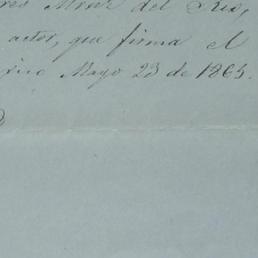 del Rio,
actor, que firma el
Mayo 23 de 1865.